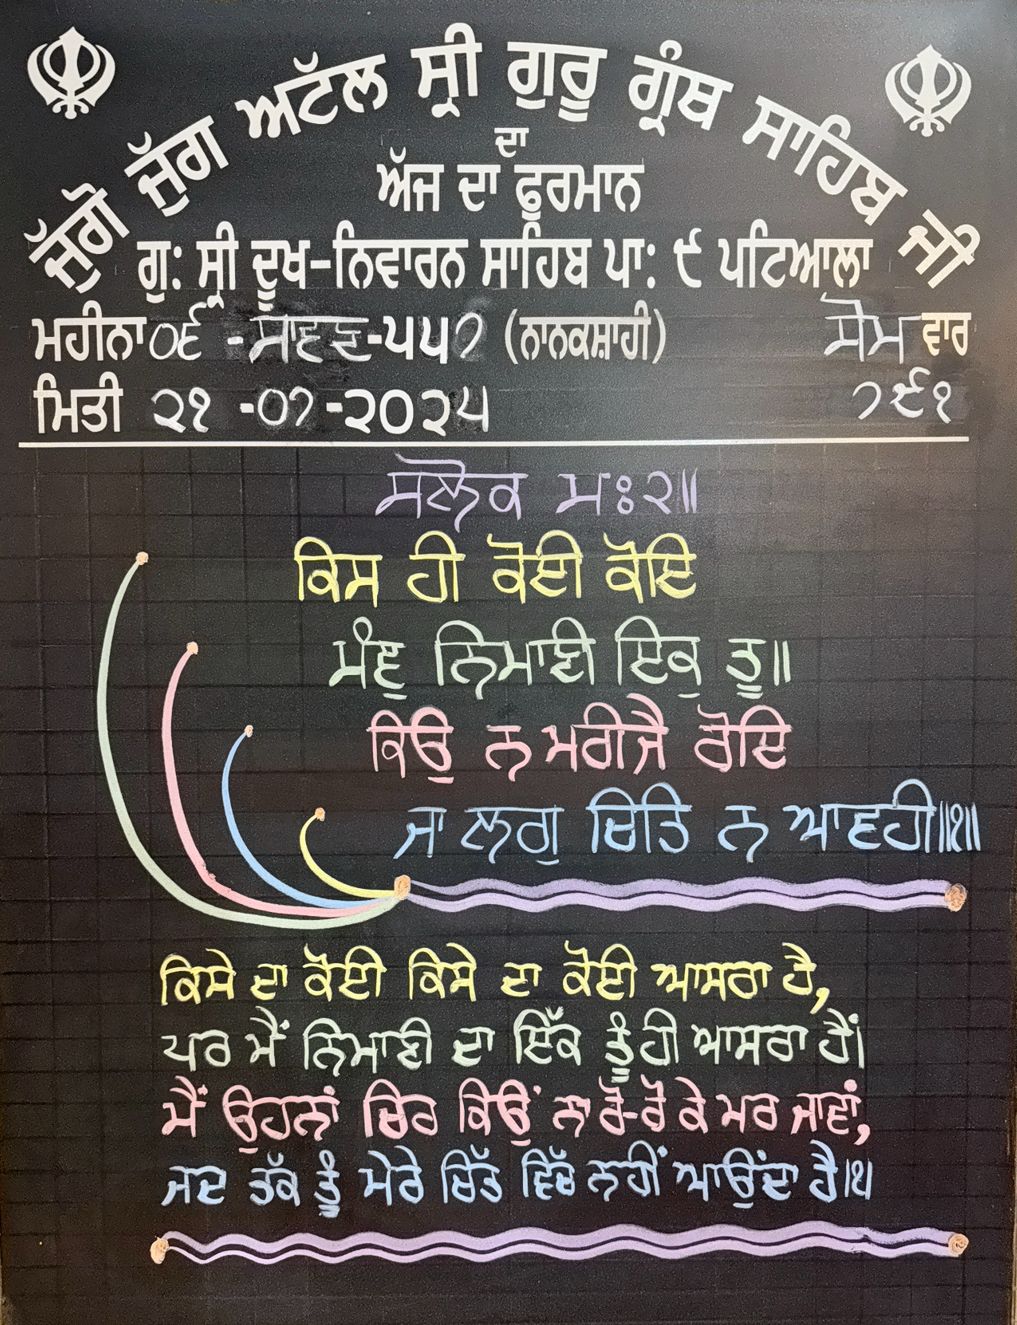 ਜੁੱਗੋ ਜੁੱਗ ਅਟੱਲ ਸ੍ਰੀ ਗੁਰੂ ਗ੍ਰੰਥ ਸਾਹਿਬ ਜੀ
ਦਾ
ਅੱਜ ਦਾ ਫੂਰਮਾਨ
ਗੁ: ਸ੍ਰੀ ਦੂਖ-ਨਿਵਾਰਨ ਸਾਹਿਬ ਪਾ: ੯ ਪਟਿਆਲਾ
ਮਹੀਨਾ ੦੬ -ਸਾਵਣ-੫੫੭ (ਨਾਨਕਸ਼ਾਹੀ) ਸੋਮ ਵਾਰ
ਮਿਤੀ ੨੧ -੦੭ -੨੦੨੫ ੭੯੧
ਸਲੋਕ ਮਃ ੨॥
ਕਿਸ ਹੀ ਕੋਈ ਕੋਇ
ਮੰਞੁ ਨਿਮਾਣੀ ਇਕੁ ਤੂ॥
ਕਿਉ ਨ ਮਰੀਜੈ ਰੋਇ
ਜਾ ਲਗੁ ਚਿਤਿ ਨ ਆਵਹੀ॥੧॥
ਕਿਸੇ ਦਾ ਕੋਈ ਕਿਸੇ ਦਾ ਕੋਈ ਆਸਰਾ ਹੈ,
ਪਰ ਮੈਂ ਨਿਮਾਣੀ ਦਾ ਇੱਕ ਤੂੰਹੀ ਆਸਰਾ ਹੈਂ।
ਮੈਂ ਉਹਨਾਂ ਚਿਰ ਕਿਉਂ ਨਾ ਰੋ-ਰੋ ਕੇ ਮਰ ਜਾਵਾਂ,
ਜਦ ਤੱਕ ਤੂੰ ਮੇਰੇ ਚਿੱਤ ਵਿੱਚ ਨਹੀਂ ਆਉਂਦਾ ਹੈ।੧।